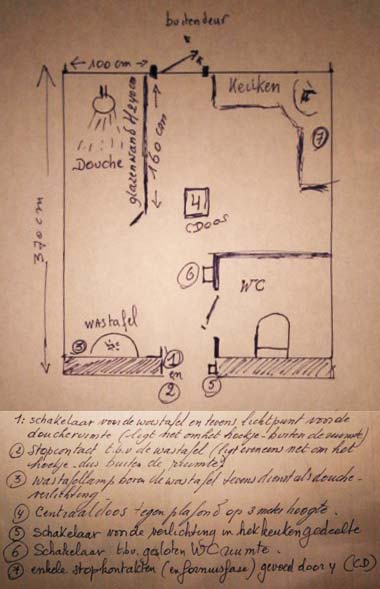 buitendeur
100 cm
Keuken
7
glazenwand H 240cm
160 cm
Douche
370 cm
4
CDOOS
6
WC
wastafel
3
1
en
2
5
1: schakelaar voor de wastafel en tevens lichtpunt voor de
doucheruimte (ligt net om het hoekje - buiten de ruimte)
2 Stopcontact t.b.v de wastafel (ligt eveneens net om het
hoekje - dus buiten de ruimte)
3 Wastafellamp boven de wastafel tevens dienst als douche-
verlichting
4 Centraaldoos tegen plafond op 3 meter hoogte.
5 Schakelaar voor de verlichting in het keukengedeelte
6 Schakelaar t.b.v. gesloten WC ruimte.
7 enkele stopkontakten (en fornuisfase) gevoed door 4 (CD)